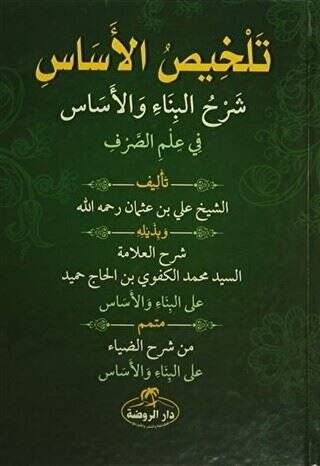 تَلْخِيصُ الأَسَاسِ
شَرْحُ البِنَاءِ وَالأَسَاسِ
فِي عِلْمِ الصَّرْفِ
تأليف
الشيخ علي بن عثمان رحمه الله
وَبِذَيْلِهِ
شرح العلامة
السيد محمد الكفوي بن الحاج حميد
على البِنَاءِ وَالأَسَاسِ
متمم
من شرح الضياء
على البِنَاءِ وَالأَسَاسِ
دار الروضة